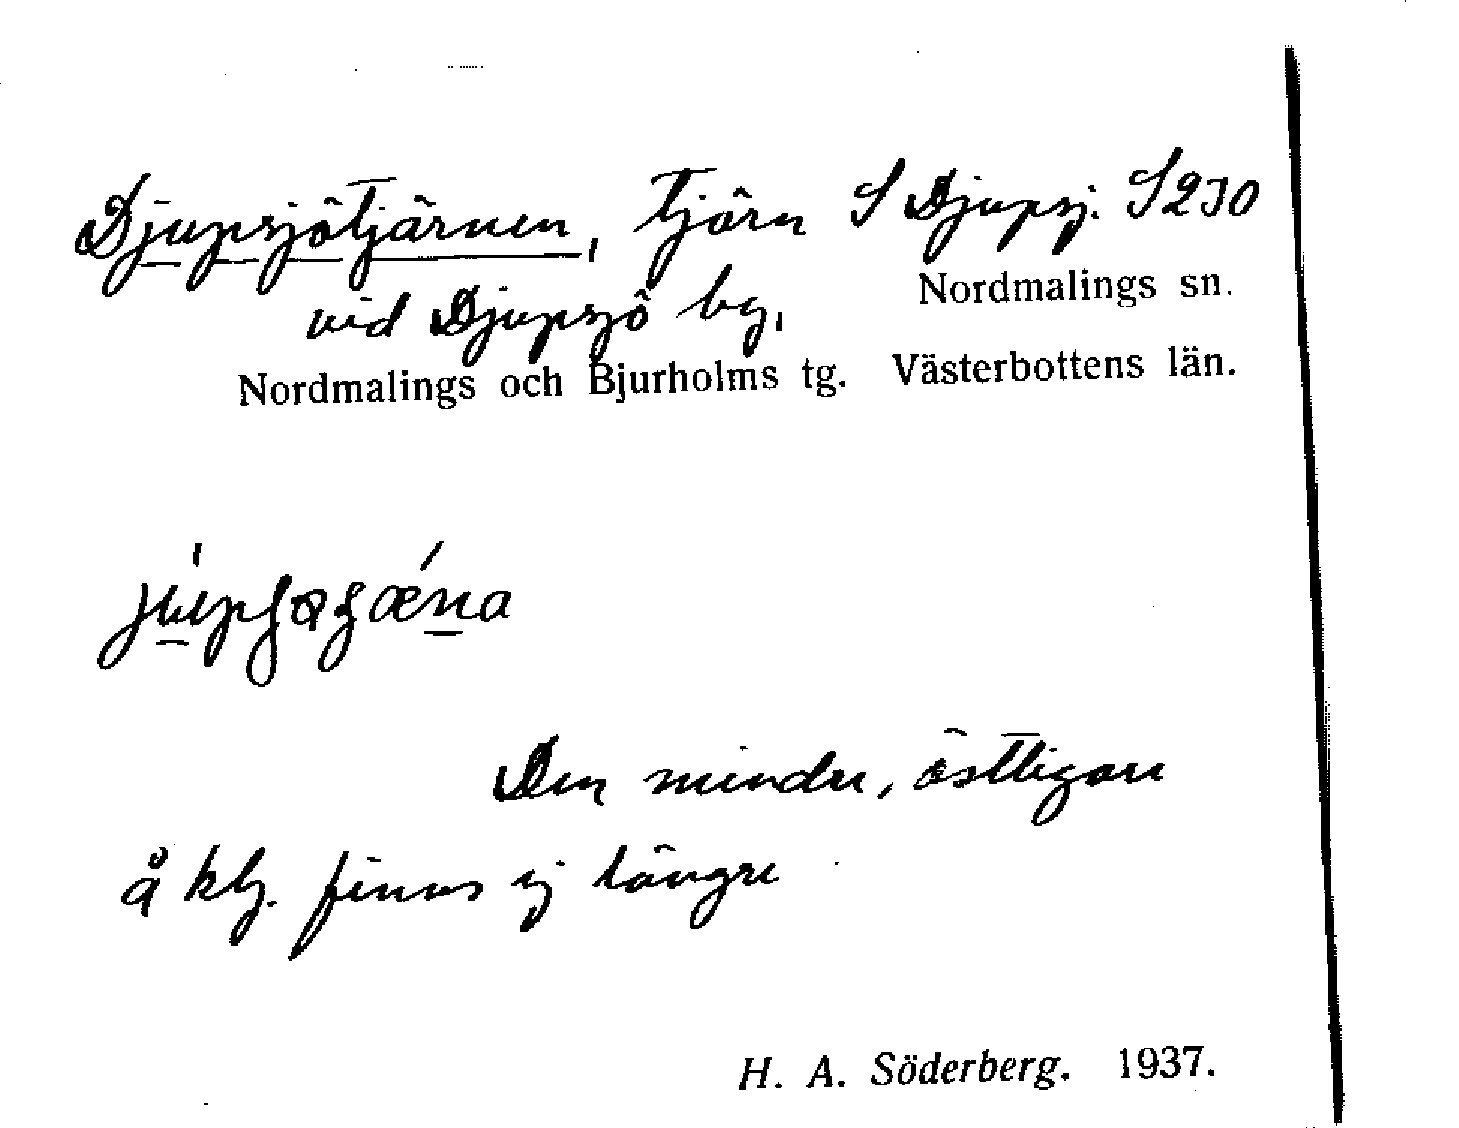 Djupsjötjärnen, Tjärn S Djupsj. S230
vid Djupsjö by,
Nordmalings sn.
Nordmalings och Bjurholms tg. Västerbottens län.
Den mindre, östligare
å kfz. finns ej längre
H. A. Söderberg. 1937.